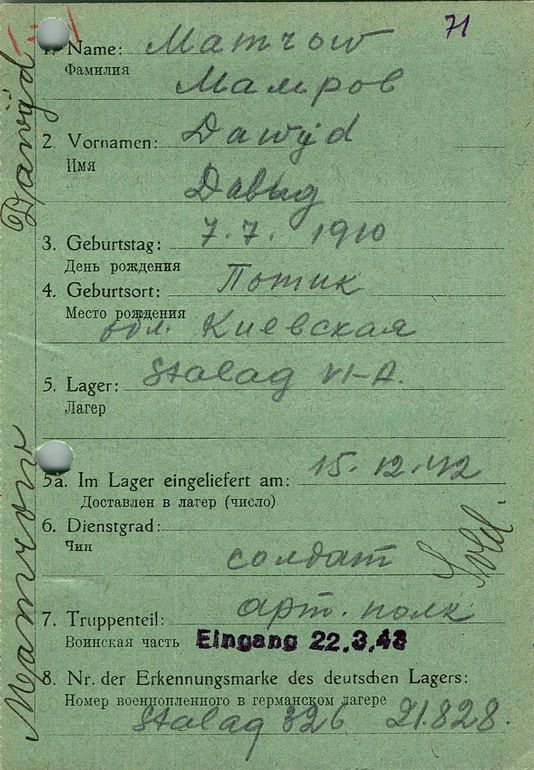 71
1. Name: Matrow
Фамилия Матров
2. Vornamen: Dawyd
Имя
Давид
3. Geburtstag: 7.7. 1910
День рождения
4. Geburtsort: Потик
Место рождения
обл. Киевская
5. Lager: Stalag VI-A.
Лагер
5a. Im Lager eingeliefert am: 15.12.42
Доставлен в лагер (число)
6. Dienstgrad:
Чин
солдат Sold.
7. Truppenteil: арт. полк
Воинская часть Eingang 22.3.43
8. Nr. der Erkennungsmarke des deutschen Lagers:
Номер военнопленного в германском лагере
Stalag 326 21.828.
Matrow Dawyd